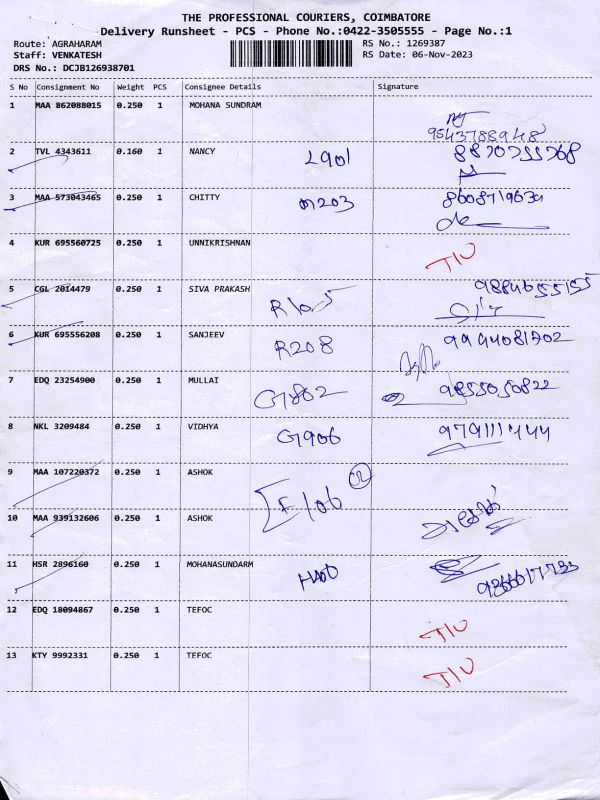 THE PROFESSIONAL COURIERS, COIMBATORE
Delivery Runsheet - PCS - Phone No.:0422-3505555 - Page No.:1
Route: AGRAHARAM
Staff: VENKATESH
DRS No.: DCJB126938701
RS No.: 1269387
RS Date: 06-Nov-2023
S No Consignment No Weight PCS Consignee Details Signature
1 MAA 862088015 0.250 1 MOHANA SUNDRAM
9543788948
2 TVL 4343611 0.160 1 NANCY L901 8870755768
3 MAA 573043465 0.250 1 CHITTY M203
4 KUR 695560725 0.250 1 UNNIKRISHNAN
5 CGL 2014479 0.250 1 SIVA PRAKASH R105 9884655155
6 KUR 695556208 0.250 1 SANJEEV R208 9994081702
7 EDQ 23254900 0.250 1 MULLAI G802 9855050822
8 NKL 3209484 0.250 1 VIDHYA G906
9 MAA 107220372 0.250 1 ASHOK
F106
10 MAA 939132606 0.250 1 ASHOK
11 HSR 2896160 0.250 1 MOHANASUNDARM
12 EDQ 18094867 0.250 1 TEFOC
13 KTY 9992331 0.250 1 TEFOC